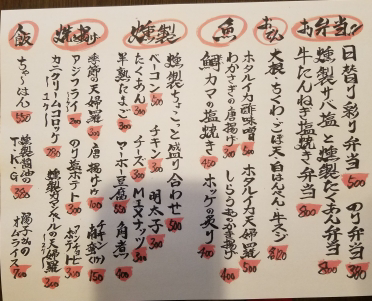 お弁当
日替り彩り弁当 500
のり弁当 380
燻製サバ塩と燻製たくあん弁当 800
牛たんねぎ塩焼き弁当 800
おでん
大根・ちくわ・ごぼ天・白はんぺん・牛スジ 各120
魚
ホタルイカ酢味噌 500
ホタルイカ天婦羅 500
わかさぎの唐揚げ 300
しらうおのかき揚げ 400
鰤カマの塩焼き 450
ホッケの炙り 400
燻製
燻製ちょこっと盛り合わせ 500
ベーコン 500
チキン 300
明太子 300
たくあん 300
チーズ 300
MIXナッツ 300
半熟たまご 300
マーボ豆腐 550
角煮 400
焼・揚
季節の天婦羅
唐揚げ 100
アジフライ 200
のり塩ポテト 300
アンチョビポテト 300
カニクリームコロッケ 280
燻製カマンベールの天婦羅 300
飯
ちゃーはん 550
燻製醤油のT.K.G. 350
陽子さんのオムライス 700